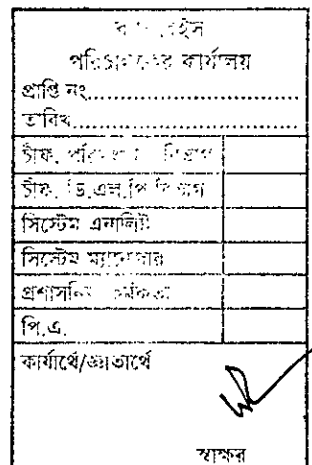 পরিচালকের কার্যালয়
প্রাপ্তি নং....................
তারিখ......................
চীফ, পরিসংখ্যান বিভাগ
চীফ, ডি.এল.পি বিভাগ
সিস্টেম এনালিষ্ট
সিস্টেম ম্যানেজার
প্রশাসনিক কর্মকর্তা
পি.এ.
কার্যার্থে/জ্ঞাতার্থে
স্বাক্ষর